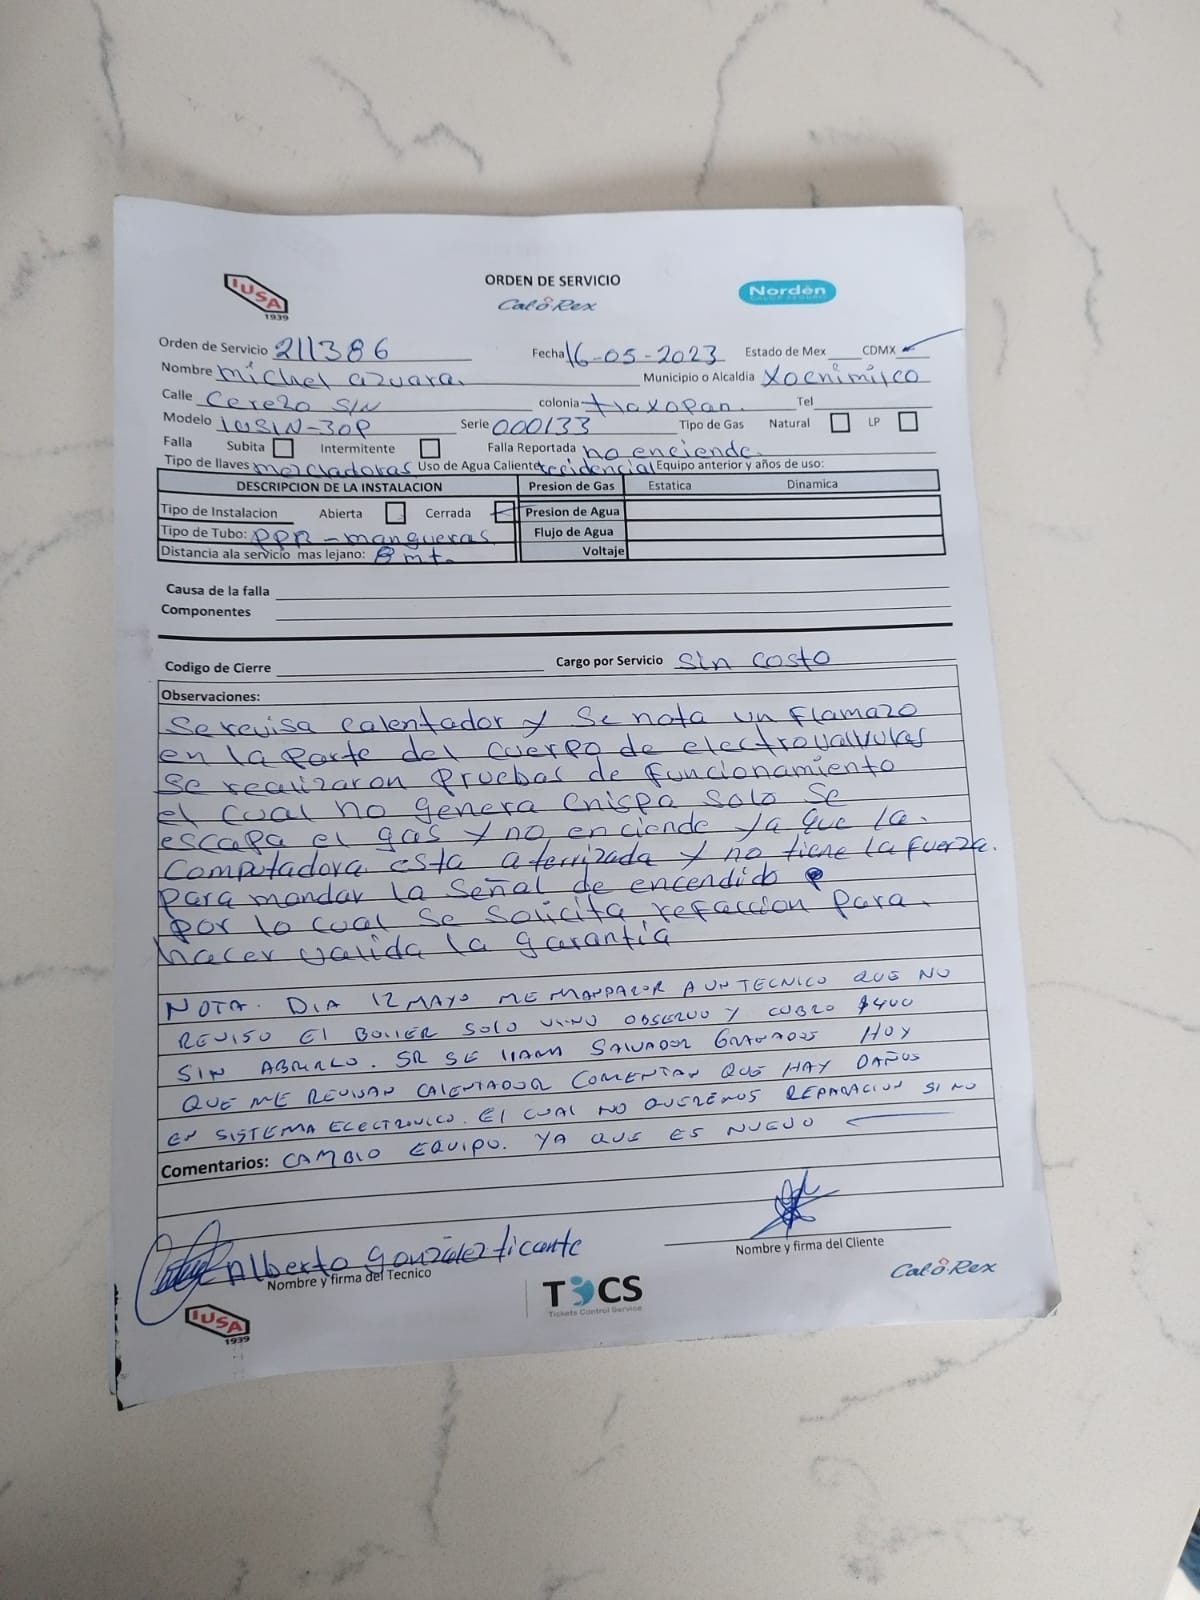 IUSA
1939
ORDEN DE SERVICIO
Cal-o-Rex
Norden
Orden de Servicio 211386 Fecha 16-05-2023 Estado de Mex ____ CDMX ✓
Nombre Michel azuara. Municipio o Alcaldia Xochimilco
Calle Cerezo S/N colonia tlaxopan. Tel
Modelo IUSIN-30P Serie 000133 Tipo de Gas Natural LP
Falla Subita Intermitente Falla Reportada no enciende.
Tipo de llaves mezcladoras Uso de Agua Caliente residencial Equipo anterior y años de uso:
DESCRIPCION DE LA INSTALACION Presion de Gas Estatica Dinamica
Tipo de Instalacion Abierta Cerrada Presion de Agua
Tipo de Tubo: PPR - mangueras Flujo de Agua
Distancia ala servicio mas lejano: 8 mt. Voltaje
Causa de la falla
Componentes
Codigo de Cierre Cargo por Servicio Sin costo
Observaciones:
Se revisa calentador y se nota un flamazo
en la parte del cuerpo de electrovalvulas
se realizaron pruebas de funcionamiento
el cual no genera chispa solo se
escapa el gas y no enciende ya que la
computadora esta aterrizada y no tiene la fuerza.
para mandar la señal de encendido
por lo cual se solicita refaccion para.
hacer valida la garantia
NOTA. DIA 12 MAYO ME MANDARON A UN TECNICO QUE NO
REVISO EL BOILER SOLO VINO OBSERVO Y COBRO $400
SIN ABRIRLO. SR SE LLAMA SALVADOR GRANADOS HOY
QUE ME REVISAN CALENTADOR COMENTAN QUE HAY DAÑOS
EN SISTEMA ELECTRONICO. EL CUAL NO QUEREMOS REPARACION SI NO
Comentarios: CAMBIO EQUIPO. YA QUE ES NUEVO
Alberto González ticante
Nombre y firma del Tecnico
Nombre y firma del Cliente
TCS
Tickets Control Service
Cal-o-Rex
IUSA
1939